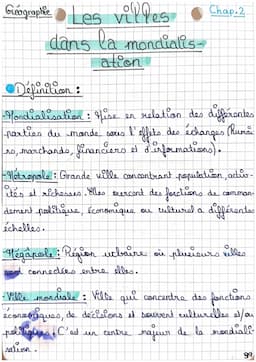 Géographie
Chap.2
Les villes
dans la mondialis-
ation
Définition :
-Mondialisation : Mise en relation des différentes
parties du monde sous l'effets des échanges (humai
ns, marchands, financiers et d'informations).
-Métropole : Grande ville concentrant population, activ-
ités et richesses. Elles exercent des fonctions de comman-
dement politique, économique ou culturel a différentes
échelles.
-Mégapole : Région urbaine où plusieurs villes
sont connectées entre elles.
-Ville mondiale : Ville qui concentre des fonctions
économiques, de décisions et souvent culturelles et/ou
politiques. C'est un centre majeur de la mondiali-
sation.
99